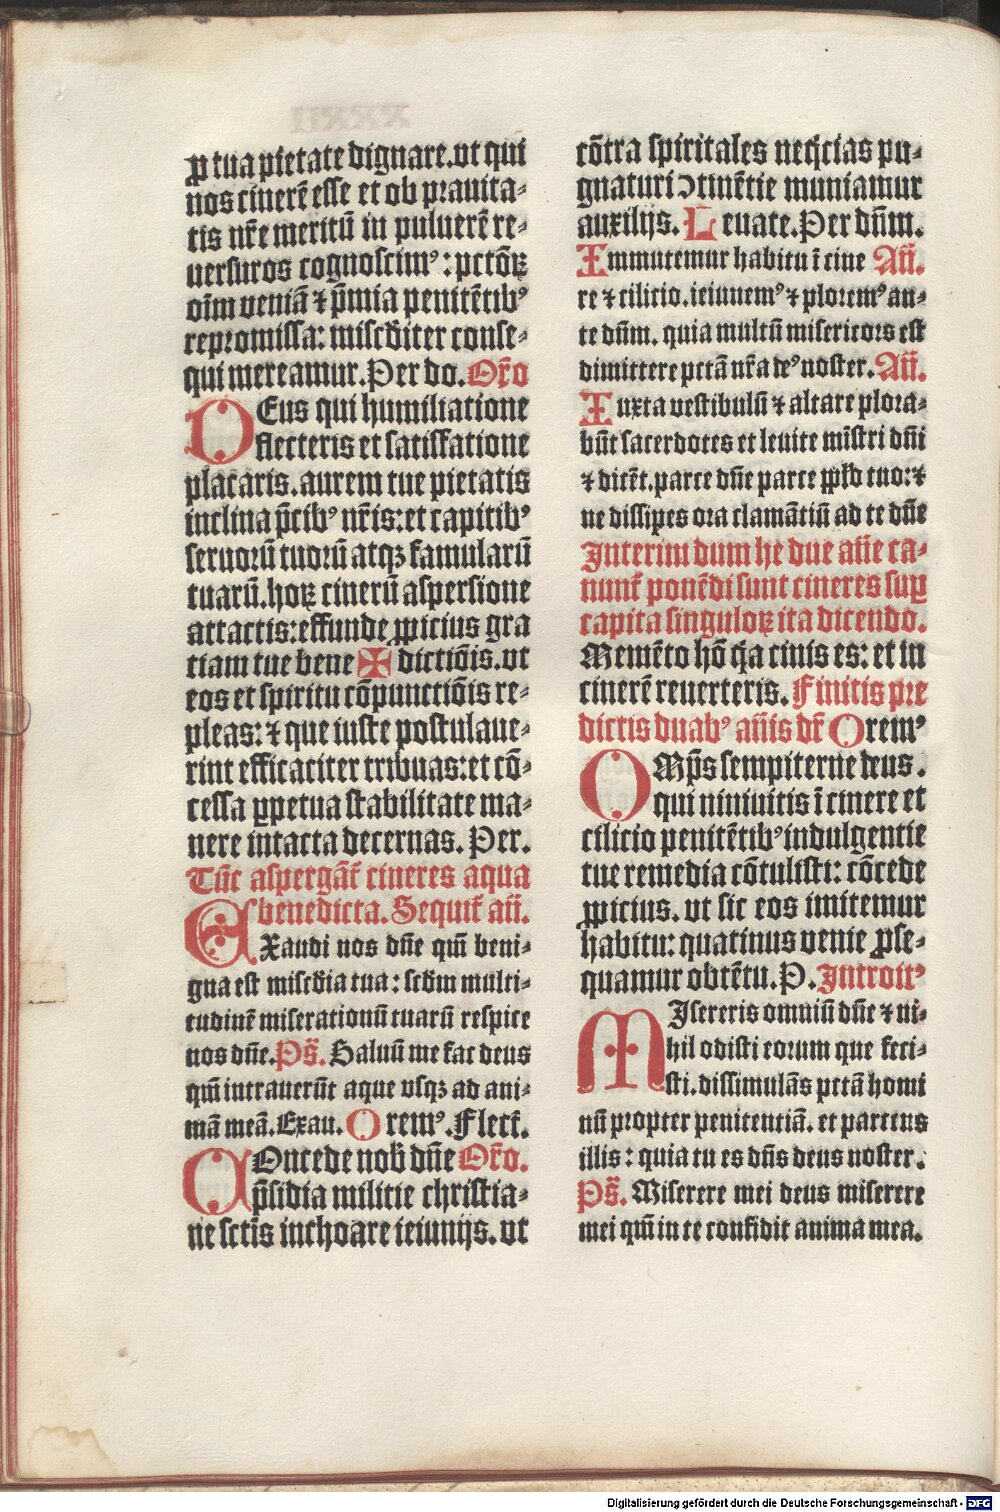 ꝓ tua pietate dignare.vt qui
nos cinerē esse et ob prauita⸗
tis nr̄e meritū in puluerē re⸗
uersuros cognoscimꝰ: pctōꝝ
oīm veniā ⁊ p̄mia penitētibꝰ
repromissa: misc̄diter conse⸗
qui mereamur. Per do. Or̄o
DEus qui humiliatione
flecteris et satisfatione
placaris. aurem tue pietatis
inclina p̄cibꝰ nr̄is: et capitibꝰ
seruorū tuorū atqꝫ famularū
tuarū. hoꝝ cinerū aspersione
attactis: effunde ꝓpicius gra
tiam tue bene ✠ dictiōis. vt
eos et spiritu cōpunctiōis re⸗
pleas: ⁊ que iuste postulaue⸗
rint efficaciter tribuas: et cō⸗
cessa ꝑpetua stabilitate ma⸗
nere intacta decernas. Per.
Tūc aspergāt᷑ cineres aqua
benedicta. Sequit᷑ an̄.
EXaudi nos dn̄e qm̄ beni⸗
gna est misc̄dia tua: scd̄m multi⸗
tudinē miserationū tuarū respice
nos dn̄e. Ps̄. Saluū me fac deus
qm̄ intrauerūt aque vsqꝫ ad ani⸗
mā meā. Exau. Oremꝰ. Flect᷑.
COncede nob̄ dn̄e Or̄o.
p̄sidia militie christia⸗
ne sctīs inchoare ieiunijs. vt
cōtra spiritales neq̄cias pu⸗
gnaturi ꝯtinētie muniamur
auxilijs. Leuate. Per dn̄m.
Immutemur habitu ī cine An̄.
re ⁊ cilicio. ieiunemꝰ ⁊ ploremꝰ an⸗
te dn̄m. quia multū misericors est
dimittere pctā nr̄a deꝰ noster. An̄.
Iuxta vestibulū ⁊ altare plora⸗
būt sacerdotes et leuite mīstri dn̄i
⁊ dicēt. parce dn̄e parce ppl̄o tuo: ⁊
ne dissipes ora clamātiū ad te dn̄e
Interim dum he due an̄e ca⸗
nunt᷑ ponēdi sunt cineres suꝑ
capita singuloꝝ ita dicendo.
Memēto hō q̄a cinis es: et in
cinerē reuerteris. Finitis pre
dictis duabꝰ an̄is dr̄ Oremꝰ
OMp̄s sempiterne deus.
qui niniuitis ī cinere et
cilicio penitētibꝰ indulgentie
tue remedia cōtulisti: cōcede
ꝓpicius. vt sic eos imitemur
habitu: quatinus venie ꝓse⸗
quamur obtētu. P. Introitꝰ
MIsereris omniū dn̄e ⁊ ni⸗
hil odisti eorum que feci⸗
sti. dissimulās pctā homi
nū propter penitentiā. et parcens
illis: quia tu es dn̄s deus noster.
Ps̄. Miserere mei deus miserere
mei qm̄ in te confidit anima mea.
Digitalisierung gefördert durch die Deutsche Forschungsgemeinschaft - DFG